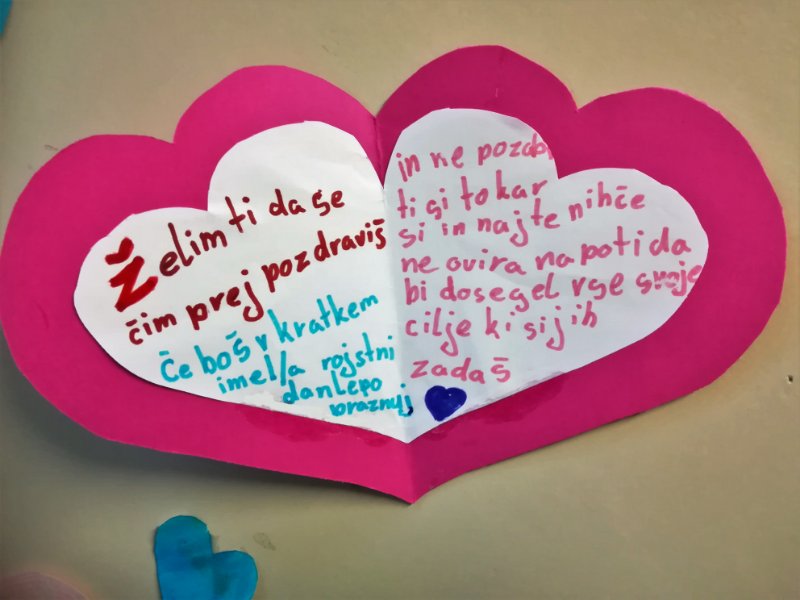 Želim ti da se
čim prej pozdraviš
Če boš v kratkem
imel/a rojstni
dan lepo
praznuj
in ne pozabi
ti si to kar
si in naj te nihče
ne ovira na poti da
bi dosegel vse svoje
cilje ki si jih
zadaš